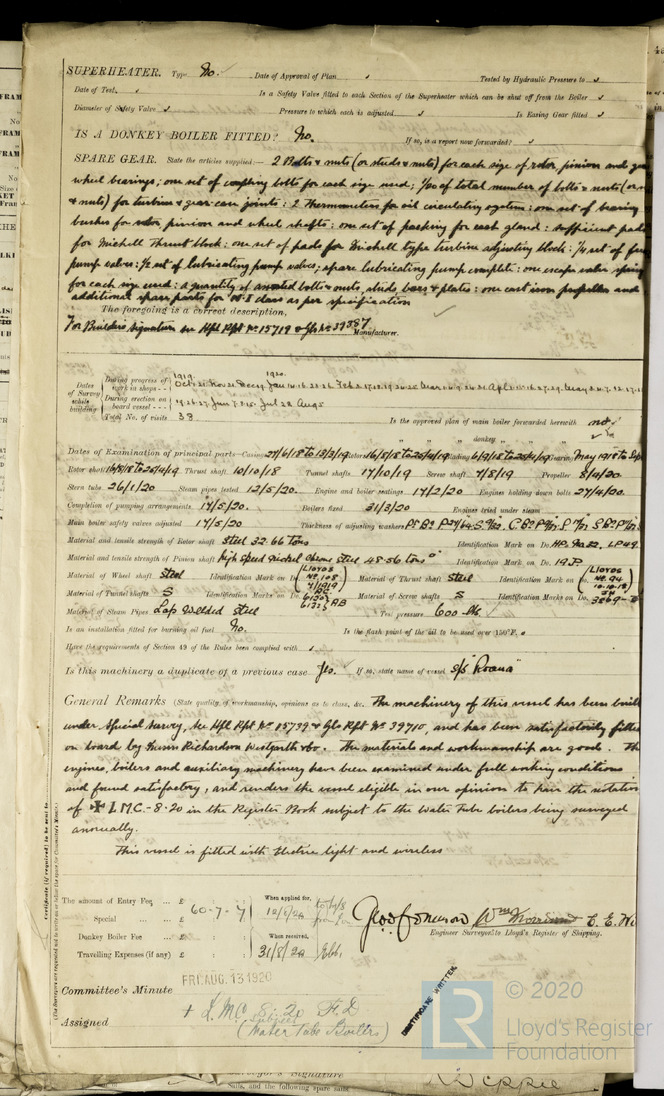 SUPERHEATER. Type No. Date of Approval of Plan Tested by Hydraulic Pressure to
Date of Test Is a Safety Valve fitted to each Section of the Superheater which can be shut off from the Boiler
Diameter of Safety Valve Pressure to which each is adjusted Is Easing Gear fitted
IS A DONKEY BOILER FITTED? No. If so, is a report now forwarded?
SPARE GEAR. State the articles supplied:— 2 Bolts & nuts (or studs & nuts) for each size of rotor, pinion and
wheel bearings; one set of coupling bolts for each size used; 1/20 of total number of bolts & nuts (or
& nuts) for turbine & gear case joints: 2 Thermometers for oil circulating system: one set of bearing
bushes for rotor pinion and wheel shafts: one set of packing for each gland: sufficient pads
for Michell Thrust block: one set of pads for Michell type turbine adjusting block: 1/4 set of
pump valves: 1/2 set of lubricating pump valves; spare lubricating pump complete: one escape valve spring
for each size used: a quantity of assorted bolts & nuts, studs, bars & plates: one cast iron propeller and
additional spare parts for No. 1 class as per specification
The foregoing is a correct description,
For Builders signature see Hpl Rpt No 15719 & Gls No 39387
Manufacturer.
Dates of Survey while building
During progress of work in shops - -
1919. 1920.
During erection on board vessel - - -
Total No. of visits 33
Is the approved plan of main boiler forwarded herewith not
" " " donkey " "
Dates of Examination of principal parts—Casings 27/6/18 to 13/3/19 Rotors 16/8/18 to 25/4/19 Blading 6/9/18 to 25/4/19 Gearing May 1918 to Sep
Rotor shaft 16/8/18 to 25/4/19 Thrust shaft 10/10/18 Tunnel shafts 17/10/19 Screw shaft 7/8/19 Propeller 8/4/20
Stern tube 26/1/20 Steam pipes tested 12/5/20. Engine and boiler seatings 17/2/20 Engines holding down bolts 27/4/20.
Completion of pumping arrangements 14/5/20. Boilers fixed 31/3/20 Engines tried under steam
Main boiler safety valves adjusted 14/5/20 Thickness of adjusting washers
Material and tensile strength of Rotor shaft Steel 32.66 tons Identification Mark on Do. HP. No 22. LP 49.
Material and tensile strength of Pinion shaft High Speed Nickel Chrome Steel 48-56 tons Identification Mark on Do. 19 JP
Material of Wheel shaft Steel Identification Mark on Do. Lloyds No 108 4/1919 Material of Thrust shaft Steel Identification Mark on Do. Lloyds No. 94 10.10.18
Material of Tunnel shafts S Identification Marks on Do. 61323 61325 AB Material of Screw shafts S Identification Marks on Do. 3269
Material of Steam Pipes Lap Welded Steel Test pressure 600 lbs.
Is an installation fitted for burning oil fuel No. Is the flash point of the oil to be used over 150°F.
Have the requirements of Section 49 of the Rules been complied with
Is this machinery a duplicate of a previous case Yes. If so, state name of vessel s/s "Roana"
General Remarks (State quality of workmanship, opinions as to class, &c. The machinery of this vessel has been built
under Special Survey, see Hpl Rpt No 15739 & Gls Rpt No 39710, and has been satisfactorily fitted
on board by Messrs Richardson Westgarth & Co. The materials and workmanship are good. The
engines, boilers and auxiliary machinery have been examined under full working conditions
and found satisfactory, and renders the vessel eligible in our opinion to have the notation
of ✠ L.M.C.- 8.20 in the Register Book subject to the Water Tube boilers being surveyed
annually.
This vessel is fitted with Electric light and wireless
Certificate (if required) to be sent to
The amount of Entry Fee £
Special £ 60-7-7
Donkey Boiler Fee £
Travelling Expenses (if any) £
When applied for,
When received,
31/8/20
Engineer Surveyor to Lloyd's Register of Shipping.
FRI. AUG. 13 1920
Committee's Minute
Assigned + L.M.C. 8.20 F.D
Subject
(Water Tube Boilers)
CERTIFICATE WRITTEN.
LR
© 2020
Lloyd's Register
Foundation